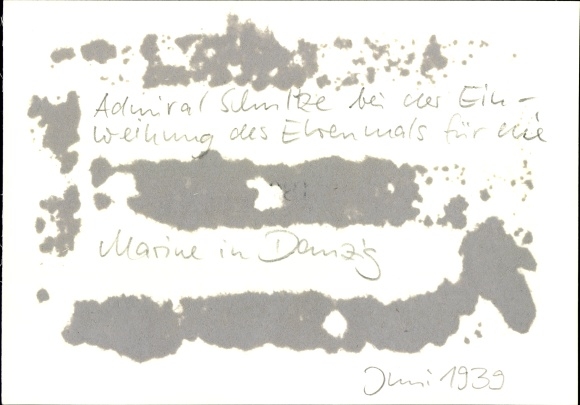 Admiral Schultze bei der Ein-
weihung des Ehrenmals für die
Marine in Danzig
Juni 1939